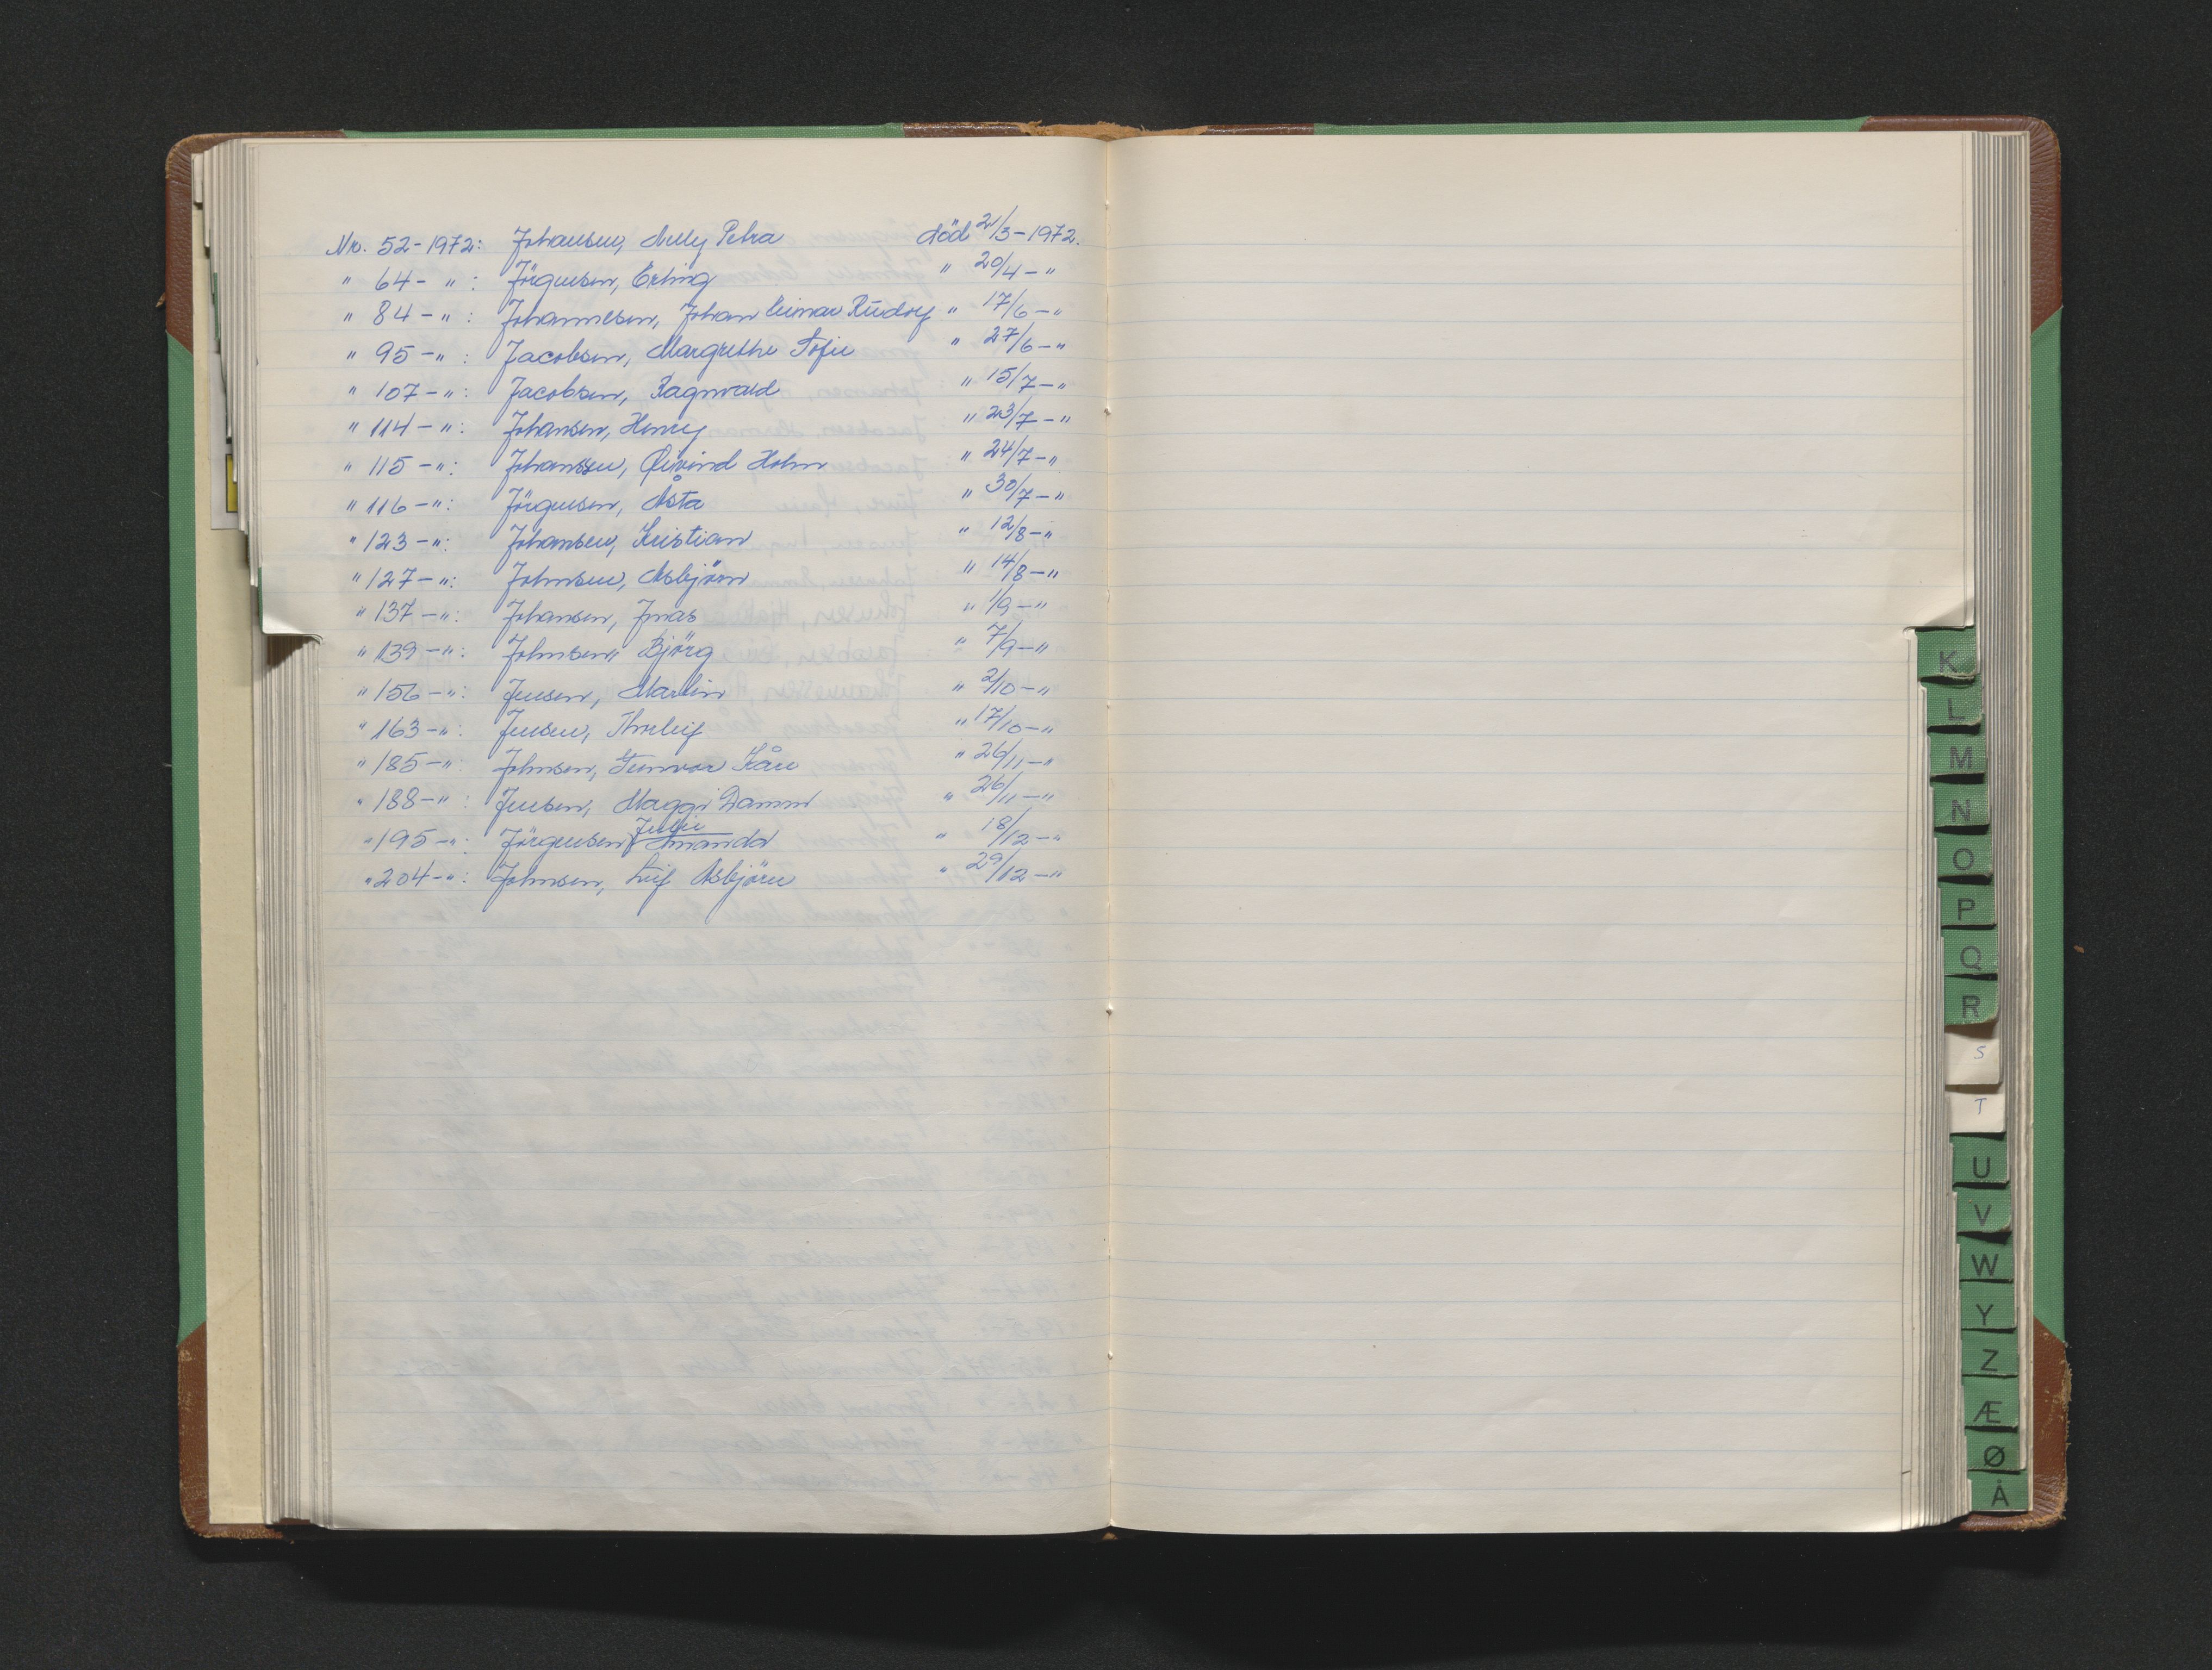 Nr. 52-1972: Johansen, Nelly Petra död 21/3-1972.
" 64- " : Jörgensen, Erling " 20/4-"
" 84-" : Johannesen, Johan Einar Rudolf " 17/6-"
" 95-" : Jacobsen, Margrethe Sofie " 27/6-"
" 107-" : Jacobsen, Ragnvald " 15/7-"
" 114-" : Johansen, Henry " 23/7-"
" 115-" : Johansen, Øivind Holm " 24/7-"
" 116-" : Jörgensen, Åsta " 30/7-"
" 123-" : Johansen, Kristian " 12/8-"
" 127-" : Johnsen, Asbjörn " 14/8-"
" 137-" : Johansen, Jonas " 1/9-"
" 139-" : Johnsen, Björg " 7/9-"
" 156-" : Jensen, Martin " 2/10-"
" 163-" : Jensen, Thorleif " 17/10-"
" 185-" : Johnsen, Gunvor Kåre " 26/11-"
" 188-" : Jensen, Maggi Damm " 26/11-"
Julie
" 195-" : Jörgensen, Amanda " 18/12-"
" 204-" : Johnsen, Leif Asbjörn " 29/12-"
K
L
M
N
O
P
Q
R
S
T
U
V
W
Y
Z
Æ
Ø
Å